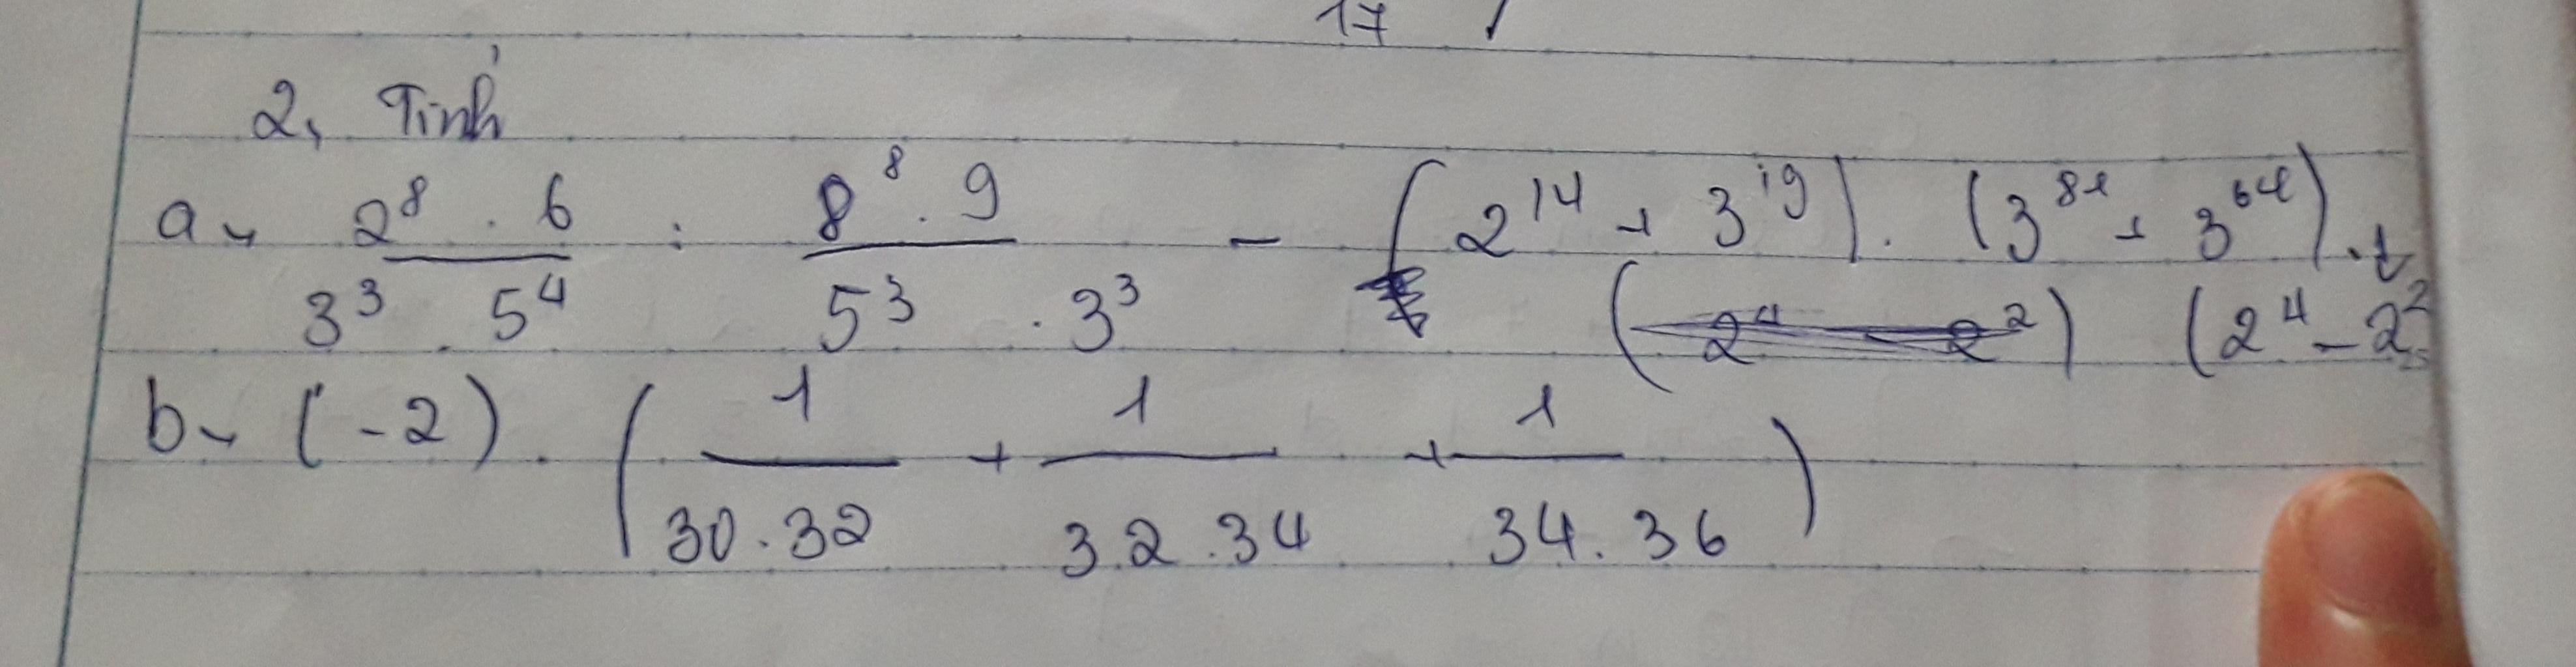 17
2, Tính
a, 2^8 . 6 / 3^3 . 5^4 : 8^8 . 9 / 5^3 . 3^3 - (2^14 + 3^19) . (3^81 + 3^64) . (2^4 - 2^2
b, (-2) . (1 / 30.32 + 1 / 32.34 + 1 / 34.36)